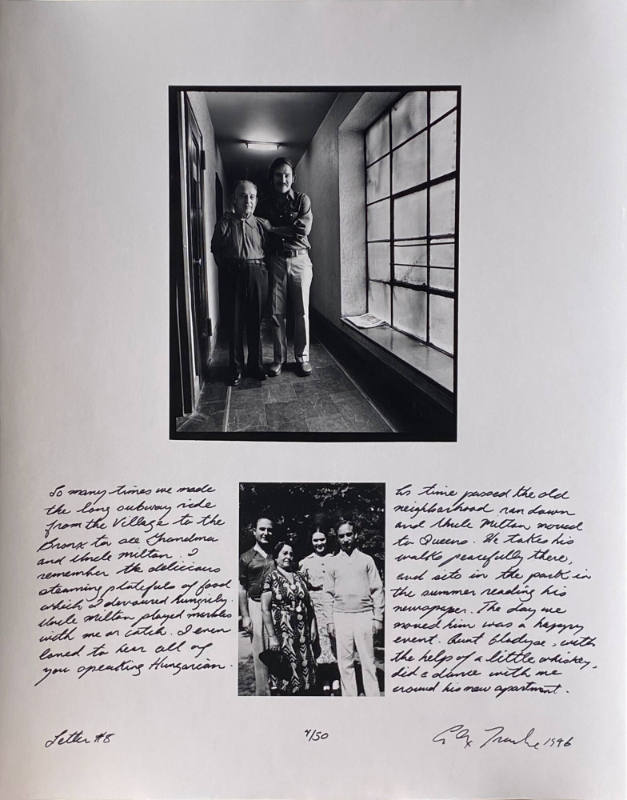 So many times we made
the long subway ride
from the Village to the
Bronx to see Grandma
and Uncle Milton. I
remember the delicious
steaming platefuls of food
which I devoured hungrily.
Uncle Milton played marbles
with me or catch. I even
loved to hear all of
you speaking Hungarian.
As time passed the old
neighborhood ran down
and Uncle Milton moved
to Queens. He takes his
walks peacefully there,
and sits in the park in
the summer reading his
newspaper. The day we
moved him was a happy
event. Aunt Gladyse, with
the help of a little whiskey,
did a dance with me
around his new apartment.
Letter #8
/50
1996